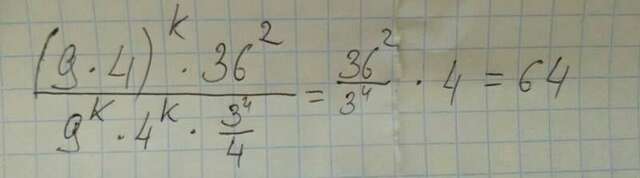 \frac{(9 \cdot 4)^k \cdot 36^2}{9^k \cdot 4^k \cdot \frac{3^4}{4}} = \frac{36^2}{3^4} \cdot 4 = 64